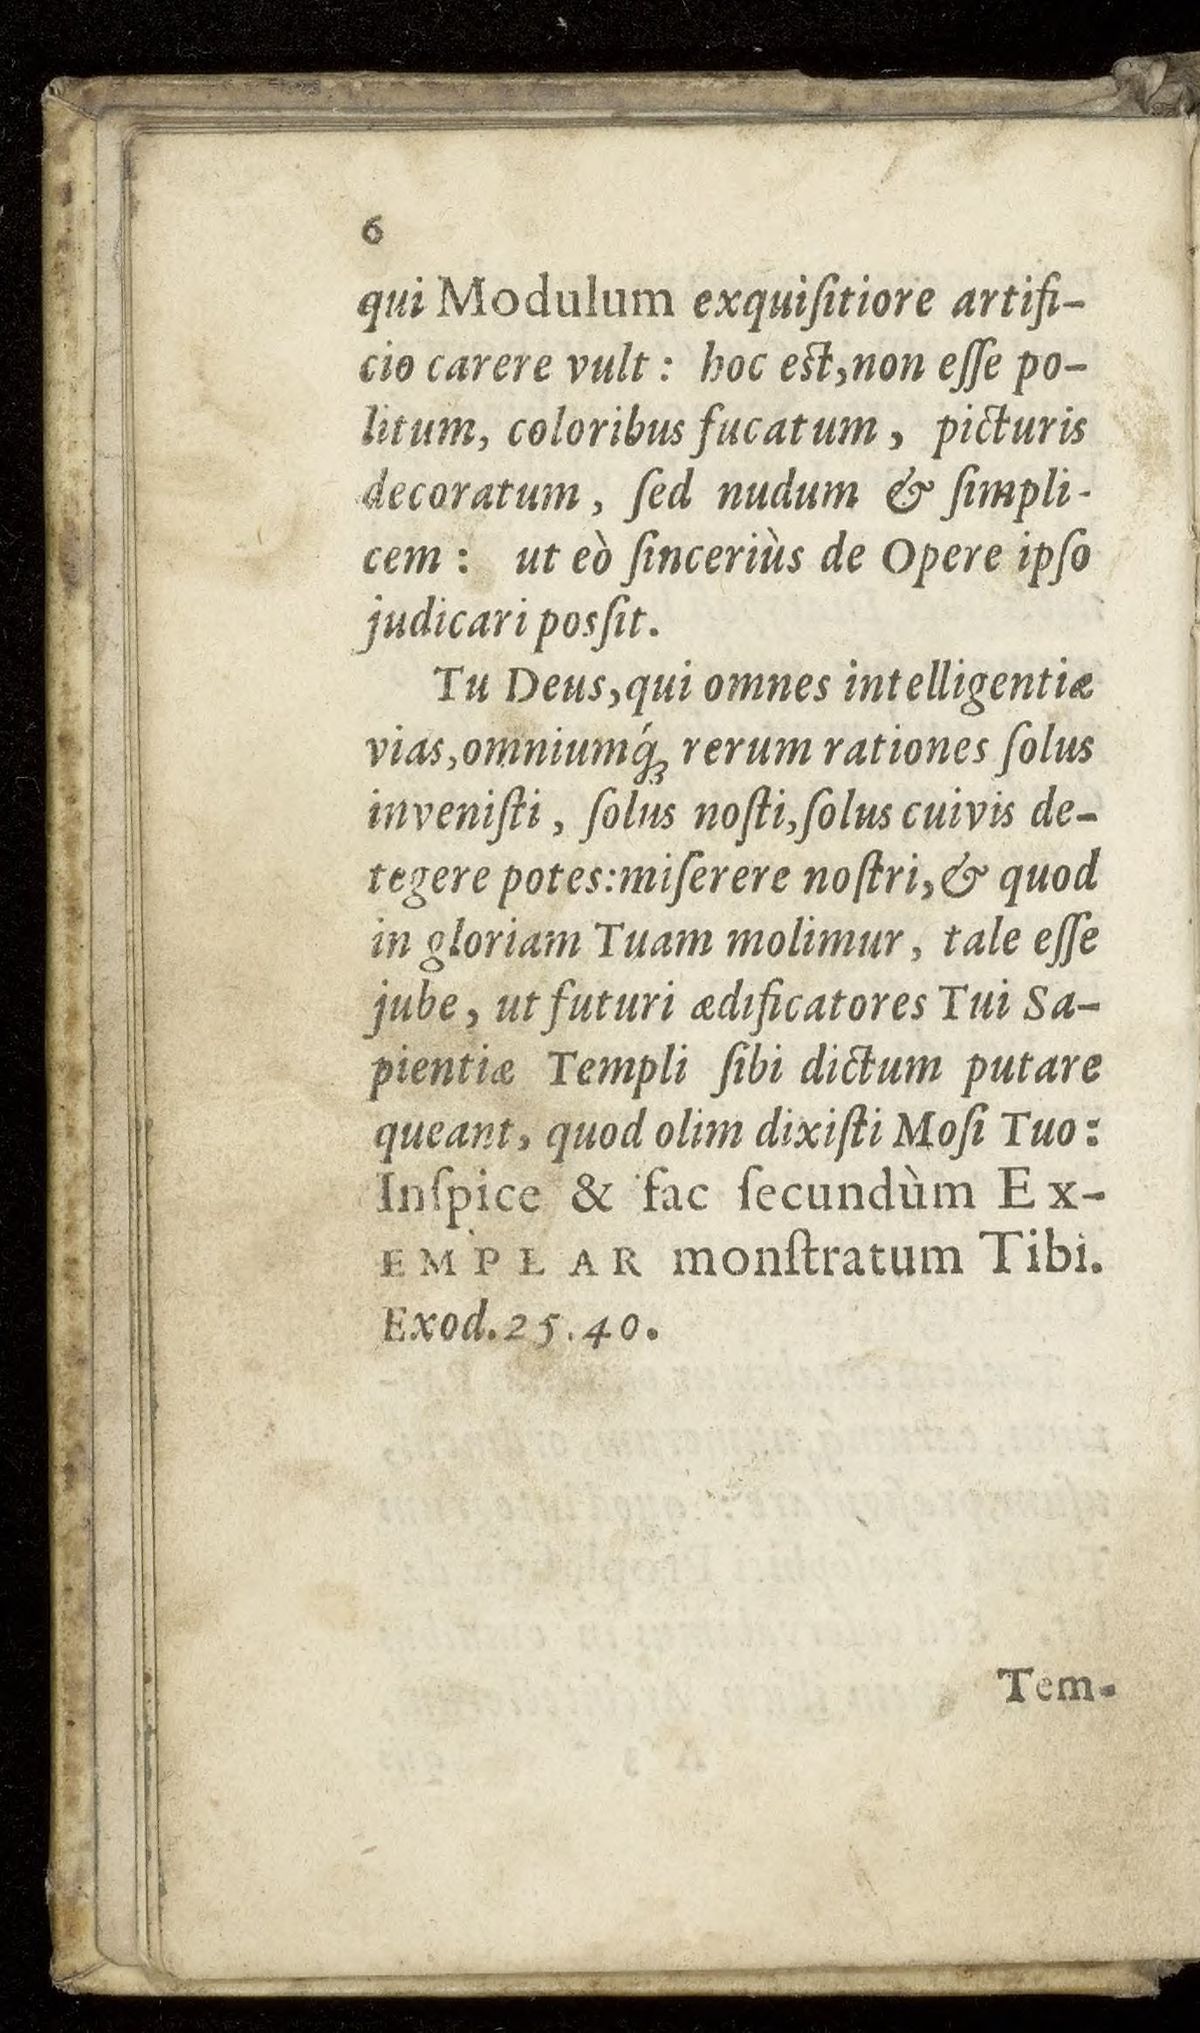 6
qui Modulum exquiſitiore artifi-
cio carere vult: hoc est, non eſſe po-
litum, coloribus fucatum, picturis
decoratum, ſed nudum & ſimpli-
cem: ut eò ſinceriùs de Opere ipſo
judicari posſit.
Tu Deus, qui omnes intelligentiæ
vias, omniumq́; rerum rationes ſolus
inveniſti, ſolus noſti, ſolus cuivis de-
tegere potes: miſerere noſtri, & quod
in gloriam Tuam molimur, tale eſſe
jube, ut futuri ædificatores Tui Sa-
pientiæ Templi ſibi dictum putare
queant, quod olim dixiſti Moſi Tuo:
Inſpice & fac ſecundùm Ex-
EMPLAR monſtratum Tibi.
Exod. 25. 40.
Tem-